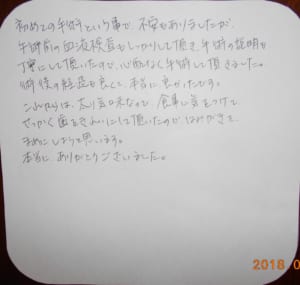 初めての手術という事で、不安もありましたが、
手術前の血液検査もしっかりして頂き、手術の説明も
丁寧にして頂いたので、心配なく手術して頂きました。
術後の経過も良くて、本当に良かったです。
これからは、太り気味なので、食事に気をつけて、
せっかく歯をきれいにして頂いたので、はみがきを
まめにしようと思います。
本当に、ありがとうございました。
2018 0